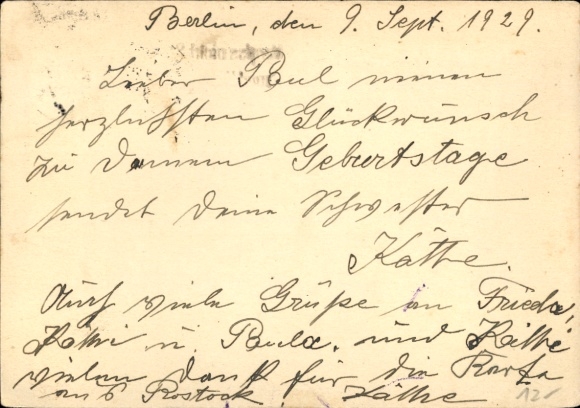 Berlin, den 9. Sept. 1929.
Lieber Paul meinen
herzlichsten Glückwunsch
zu Deinem Geburtstage
sendet Deine Schwester
Käthe.
Auch viele Grüße an Frieda,
Käthi u. Paula. und Käthe
vielen Dank für die Karte
aus Rostock. Käthe